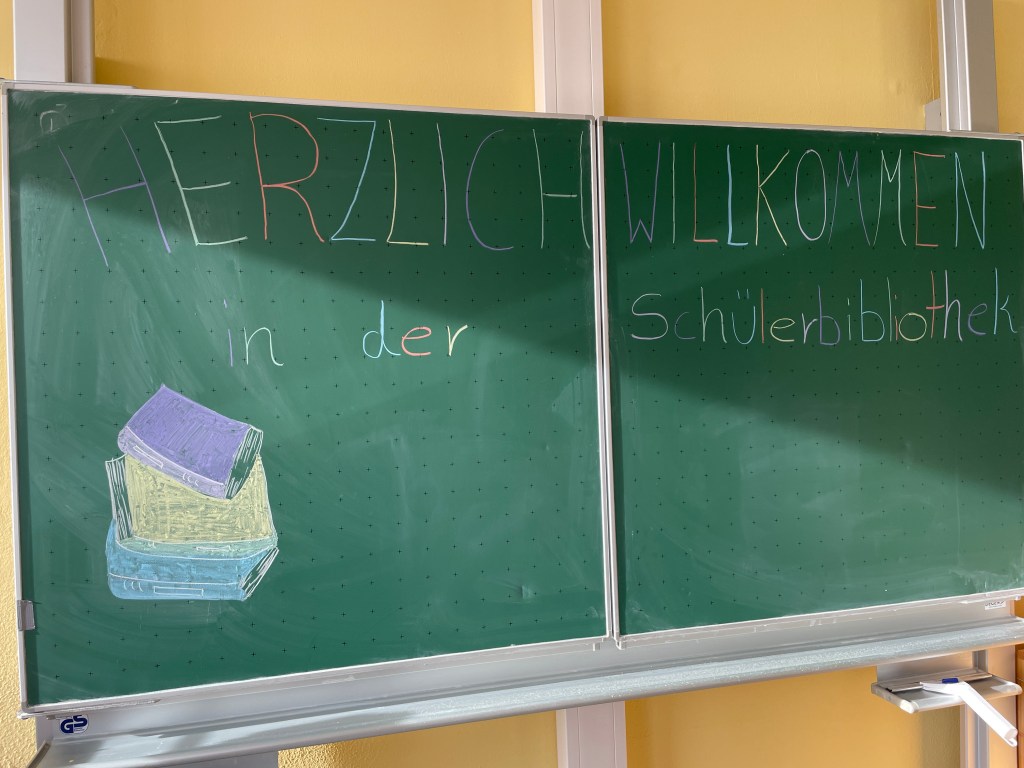 HERZLICH WILLKOMMEN
in der Schülerbibliothek
GS